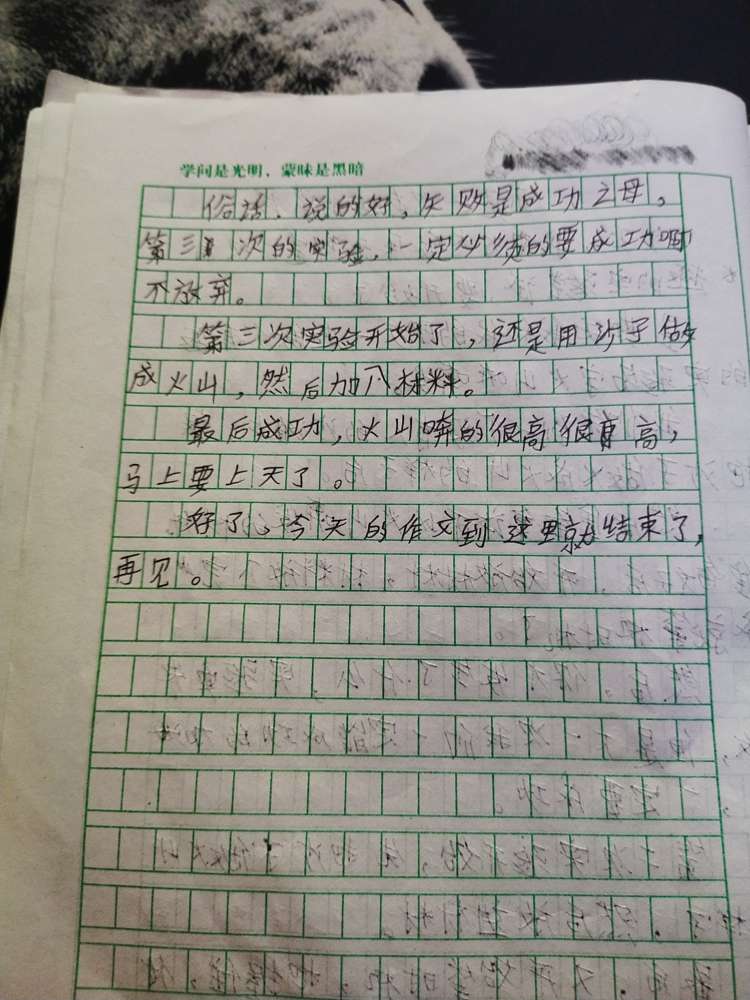 学问是光明，蒙昧是黑暗
俗话、说的好，失败是成功之母，
第三次的实验，一定必须的要成功啊
不放弃。
第三次实验开始了，还是用沙子做
成火山，然后加入材料。
最后成功，火山喷的很高很高，
马上要上天了。
好了，今天的作文到这里就结束了，
再见。